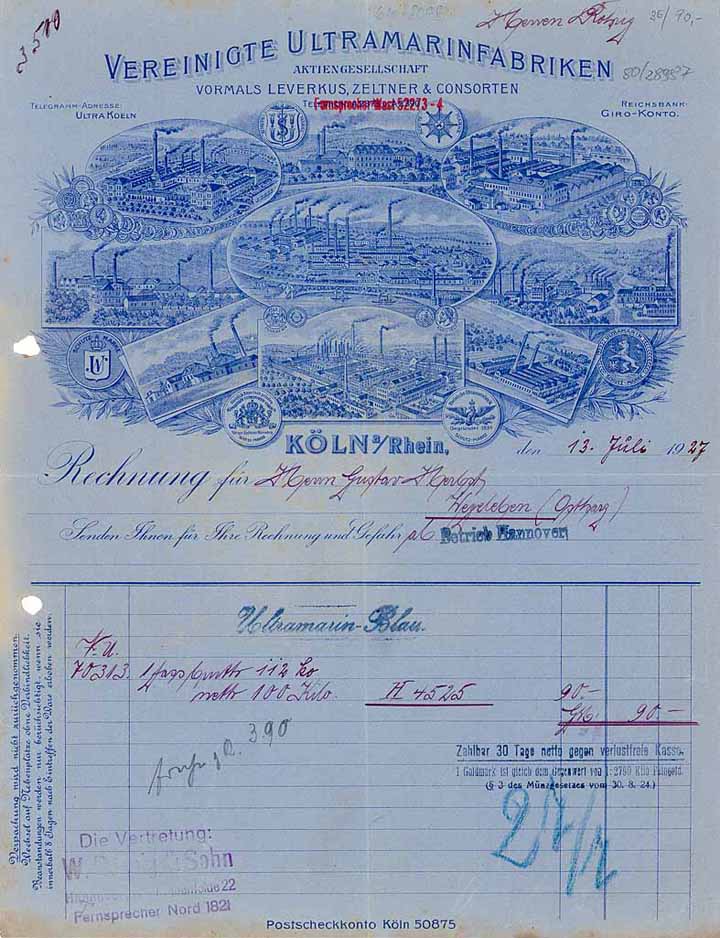 3500
Herren
25/70,-
VEREINIGTE ULTRAMARINFABRIKEN
80/28987
AKTIENGESELLSCHAFT
VORMALS LEVERKUS, ZELTNER & CONSORTEN
TELEGRAMM-ADRESSE:
ULTRA KOELN
Fernsprecher West 52273-4
REICHSBANK-
GIRO-KONTO.
KÖLN a/Rhein,
den 13. Juli 1927
Rechnung für Herrn Gustav Herbst
Wegeleben (Ostharz)
Senden Ihnen für Ihre Rechnung und Gefahr
Betrieb Hannover
Ultramarin-Blau.
V.U.
70313. 1 Fass brutto 112 ko
netto 100 Kilo. 4525 90.-
90.-
3.90
Zahlbar 30 Tage netto gegen verlustfreie Kasse.
1 Goldmark ist gleich dem Gegenwert von 1:2790 Kilo Feingold.
(§ 3 des Münzgesetzes vom 30. 8. 24.)
Verpackung wird nicht zurückgenommen.
Wechsel auf Nebenplätze ohne Verbindlichkeit.
Beanstandungen werden nur berücksichtigt, wenn sie
innerhalb 8 Tagen nach Eintreffen der Ware erhoben werden.
Die Vertretung:
W. Sohn
22
Fernsprecher Nord 1821
Postscheckkonto Köln 50875